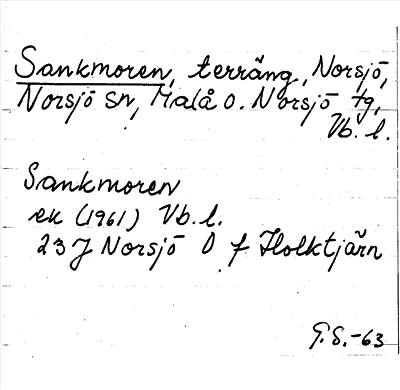 Sankmoren, terräng, Norsjö,
Norsjö sn, Malå o. Norsjö tg,
Vb. l.
Sankmoren
ek (1961) Vb. l.
23 J Norsjö O f Holktjärn
G.S.-63